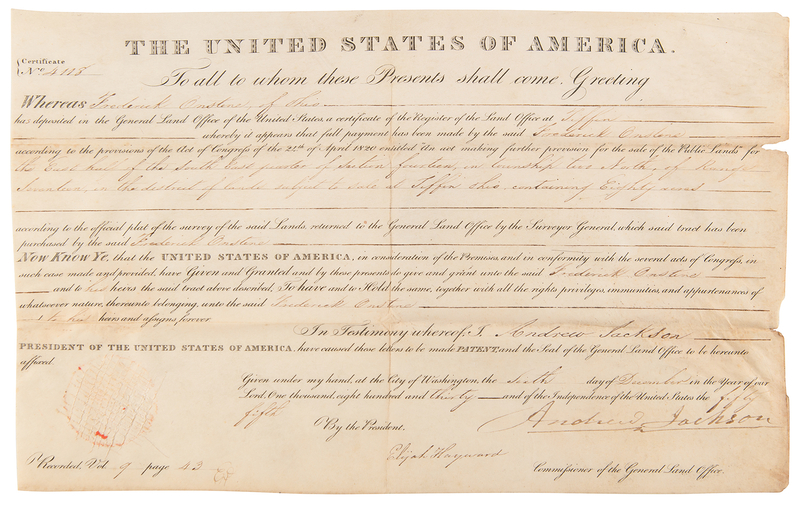 THE UNITED STATES OF AMERICA.
Certificate
No. 4115
To all to whom these Presents shall come, Greeting
Whereas Frederick Onstine, of Ohio
has deposited in the General Land Office of the United States, a certificate of the Register of the Land Office at Tiffin
whereby it appears that full payment has been made by the said Frederick Onstine
according to the provisions of the Act of Congress of the 24th of April 1820 entitled "An act making further provision for the sale of the Public Lands" for
the East half of the South East quarter of Section fourteen, in township two North, of Range
Seventeen, in the district of lands subject to sale at Tiffin Ohio, containing Eighty acres
according to the official plat of the survey of the said Lands, returned to the General Land Office by the Surveyor General, which said tract has been
purchased by the said Frederick Onstine
Now Know Ye, that the UNITED STATES OF AMERICA, in consideration of the Premises, and in conformity with the several acts of Congress, in
such case made and provided, have Given and Granted and by these presents do give and grant unto the said Frederick Onstine
and to his heirs the said tract above described, To have and to Hold the same, together with all the rights privileges, immunities, and appurtenances of
whatsoever nature, thereunto belonging, unto the said Frederick Onstine
& to his heirs and assigns, forever
In Testimony whereof, I, Andrew Jackson
PRESIDENT OF THE UNITED STATES OF AMERICA, have caused these letters to be made PATENT, and the Seal of the General Land Office to be hereunto
affixed
Given under my hand, at the City of Washington, the sixth day of December in the Year of our
Lord, One thousand, eight hundred and thirty and of the Independence of the United States the fifty
fifth
By the President.
Andrew Jackson
Elijah Hayward
Commissioner of the General Land Office.
Recorded, Vol 9 page 43